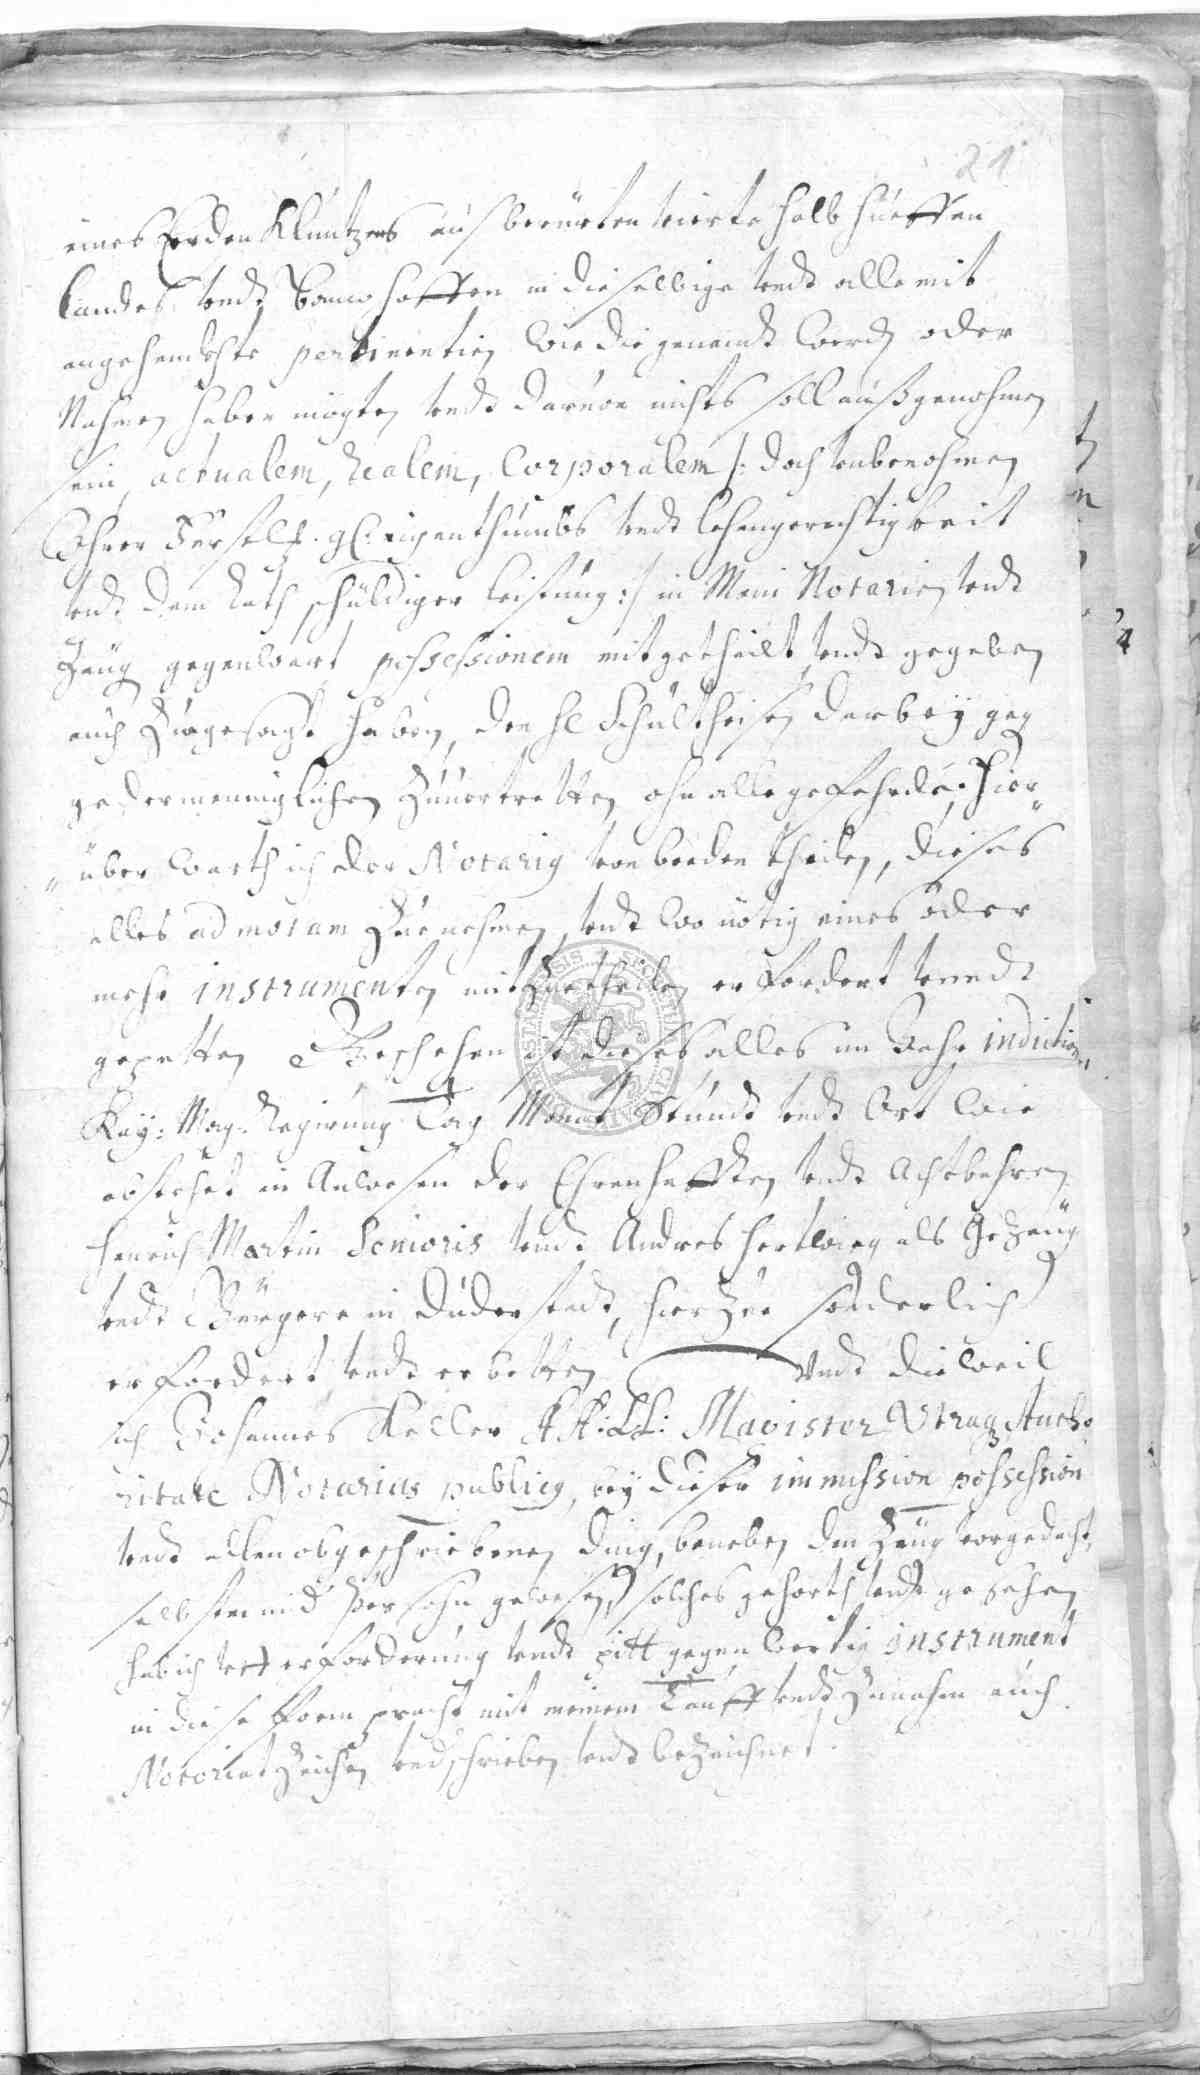 21
eines Erden Kluntzens aus berürten vierte halb hueffen
landes, vndt Baumhoffen in dieselbige vndt alle mit
angehendeste pertinentien wie die genandt werden oder
Nahmen haben mögten vndt daruon nichts soll außgenohmen
sein, actualem, realem, Corporalem /: doch vnbenohmen
Ihrer Fürstl. gl. eigenthumbs vndt lehengerechtigkeit
vndt dem Rath schuldiger leistung :/ in Mein Notarien vndt
Zeug gegenwart possessionem mitgetheilt vndt gegeben
auch Zugesagt haben, den hl Schultheisen darbey geg
jedermenniglichen Zuuertretten ohn alle gefehrde, Hier
über warth ich der Notarig von beeden theilen, dieses
alles ad notam Zue nehmen, vndt wo nötig eines oder
mehr instrumenten mit Zutheilen erfordert vndt
gepetten Geschehen ist dieses alles im Jahr indiction
Kay: May: Regirung Tag Monat Stundt vndt Ort wie
obstehet in Anwesen der Ehrenhafften vndt Achtbahren
Henrich Martin Senioris vndt Andres Hertwieg als Gezeug
vndt Bürgere in Duderstadt, hier Zue sonderlich
erfordert vndt erbetten Vndt dieweil
ich Johannes Keller AA: LL: Magister Vtraq Autho
ritate Notarius publicq, bey dieser immission possession
vndt allen obgeschriebenen Ding, beneben den Zeug vorgedacht,
selbsten in d Persohn gewesen, solches gehorth vndt gesehen
hab ich vff erforderung vndt pitt gegenwertig instrument
in diese Form pracht mit meinem Tauff vndt Zunahm auch
Notoriat Zeichen vndschrieben vndt bezeichnet.